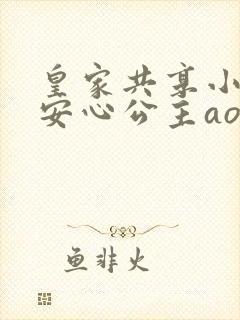 皇家共享小
安心公主ao
鱼非火